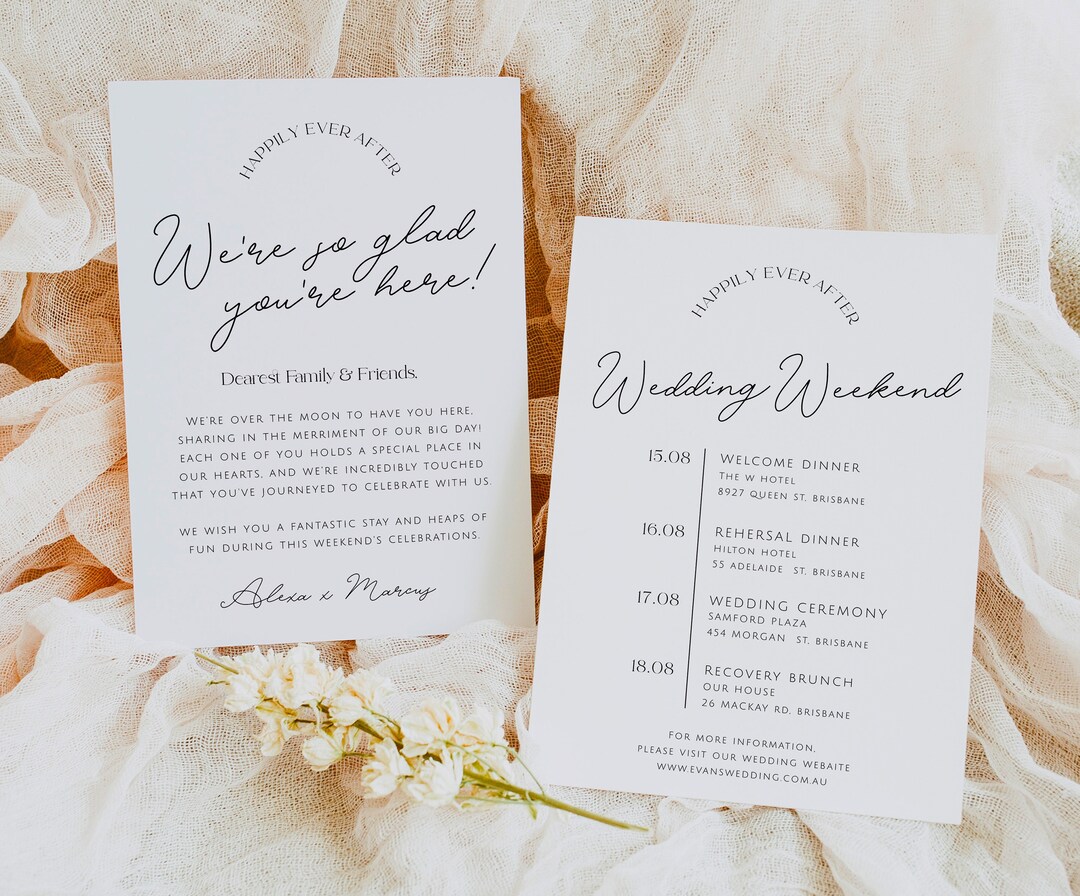 HAPPILY EVER AFTER
We're so glad
you're here!
Dearest Family & Friends.
WE'RE OVER THE MOON TO HAVE YOU HERE,
SHARING IN THE MERRIMENT OF OUR BIG DAY!
EACH ONE OF YOU HOLDS A SPECIAL PLACE IN
OUR HEARTS, AND WE'RE INCREDIBLY TOUCHED
THAT YOU'VE JOURNEYED TO CELEBRATE WITH US.
WE WISH YOU A FANTASTIC STAY AND HEAPS OF
FUN DURING THIS WEEKEND'S CELEBRATIONS.
Alexa x Marcus
HAPPILY EVER AFTER
Wedding Weekend
15.08
WELCOME DINNER
THE W HOTEL
8927 QUEEN ST. BRISBANE
16.08
REHERSAL DINNER
HILTON HOTEL
55 ADELAIDE ST. BRISBANE
17.08
WEDDING CEREMONY
SAMFORD PLAZA
454 MORGAN ST. BRISBANE
18.08
RECOVERY BRUNCH
OUR HOUSE
26 MACKAY RD. BRISBANE
FOR MORE INFORMATION,
PLEASE VISIT OUR WEDDING WEBAITE
WWW.EVANSWEDDING.COM.AU